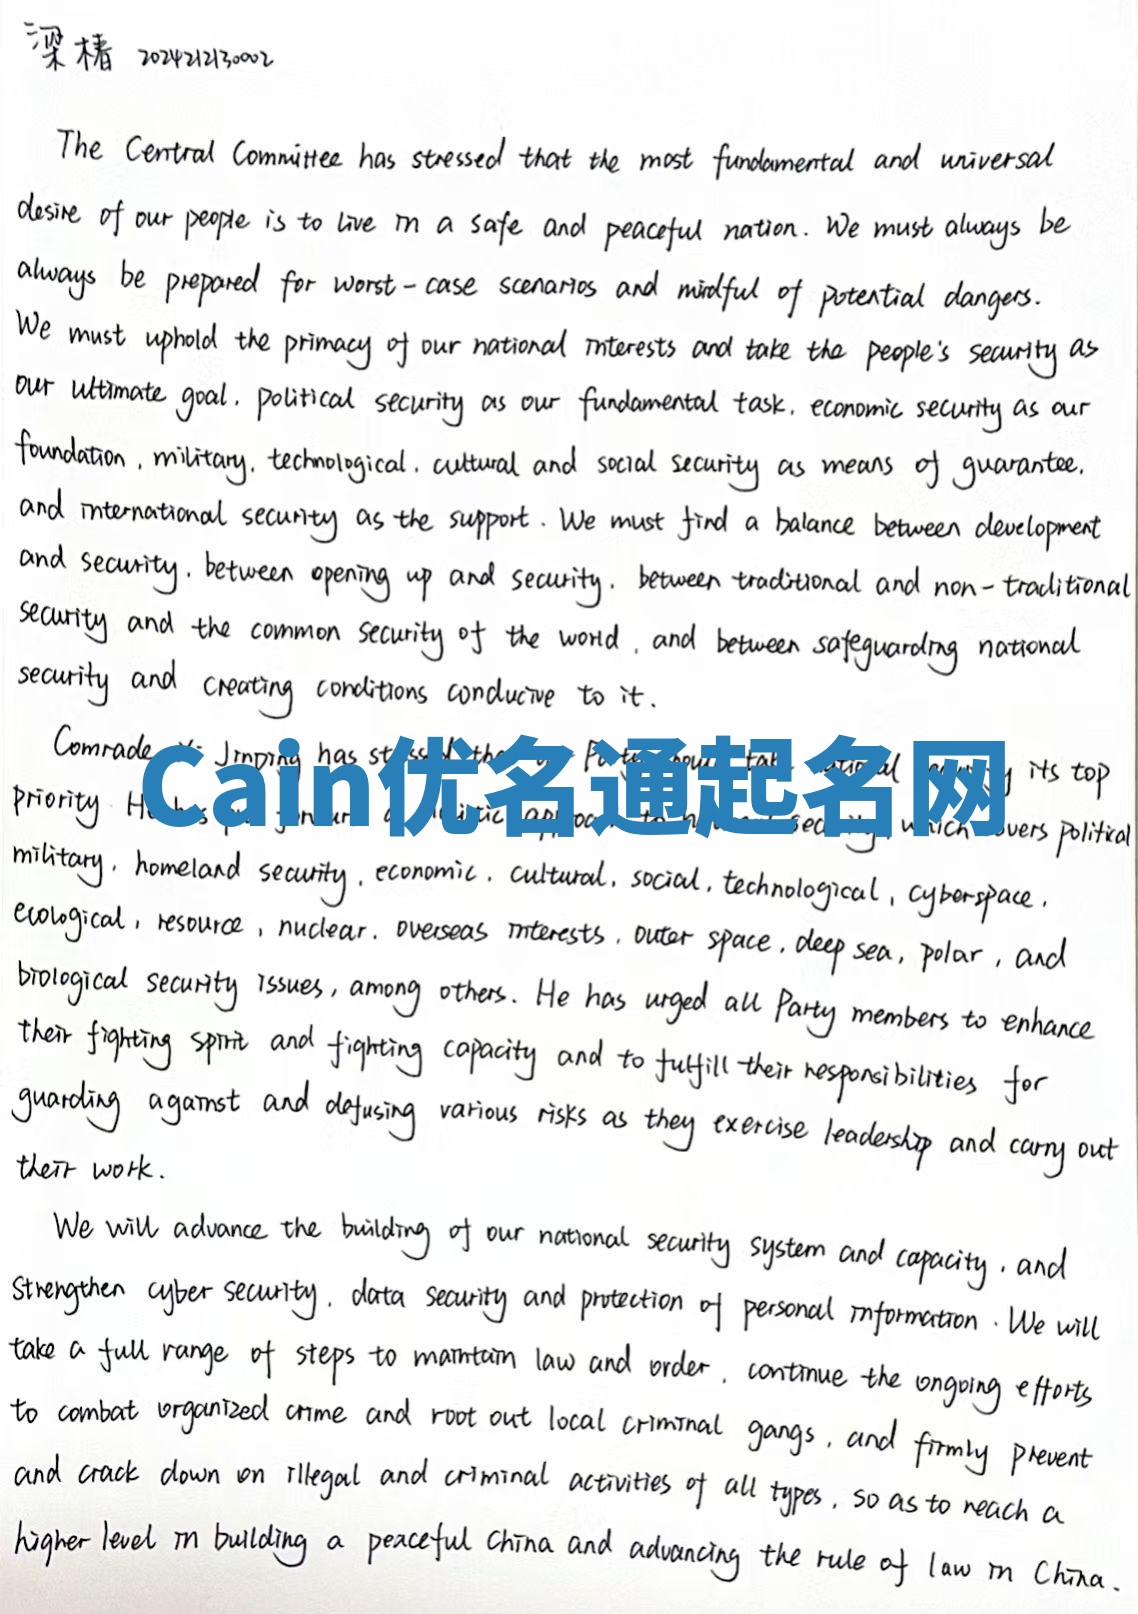 梁椿 2024212130002
The Central Committee has stressed that the most fundamental and universal
desire of our people is to live in a safe and peaceful nation. We must always be
always be prepared for worst-case scenarios and mindful of potential dangers.
We must uphold the primacy of our national interests and take the people's security as
our ultimate goal, political security as our fundamental task, economic security as our
foundation, military, technological, cultural and social security as means of guarantee,
and international security as the support. We must find a balance between development
and security, between opening up and security, between traditional and non-traditional
security and the common security of the world, and between safeguarding national
security and creating conditions conducive to it.
Comrade Jinping has its top
Cain优名通起名网
priority which political
military, homeland security, economic, cultural, social, technological, cyberspace,
ecological, resource, nuclear, overseas interests, outer space, deep sea, polar, and
biological security issues, among others. He has urged all Party members to enhance
their fighting spirit and fighting capacity and to fulfill their responsibilities for
guarding against and defusing various risks as they exercise leadership and carry out
their work.
We will advance the building of our national security system and capacity, and
strengthen cyber security, data security and protection of personal information. We will
take a full range of steps to maintain law and order, continue the ongoing efforts
to combat organized crime and root out local criminal gangs, and firmly prevent
and crack down on illegal and criminal activities of all types, so as to reach a
higher level in building a peaceful China and advancing the rule of law in China.